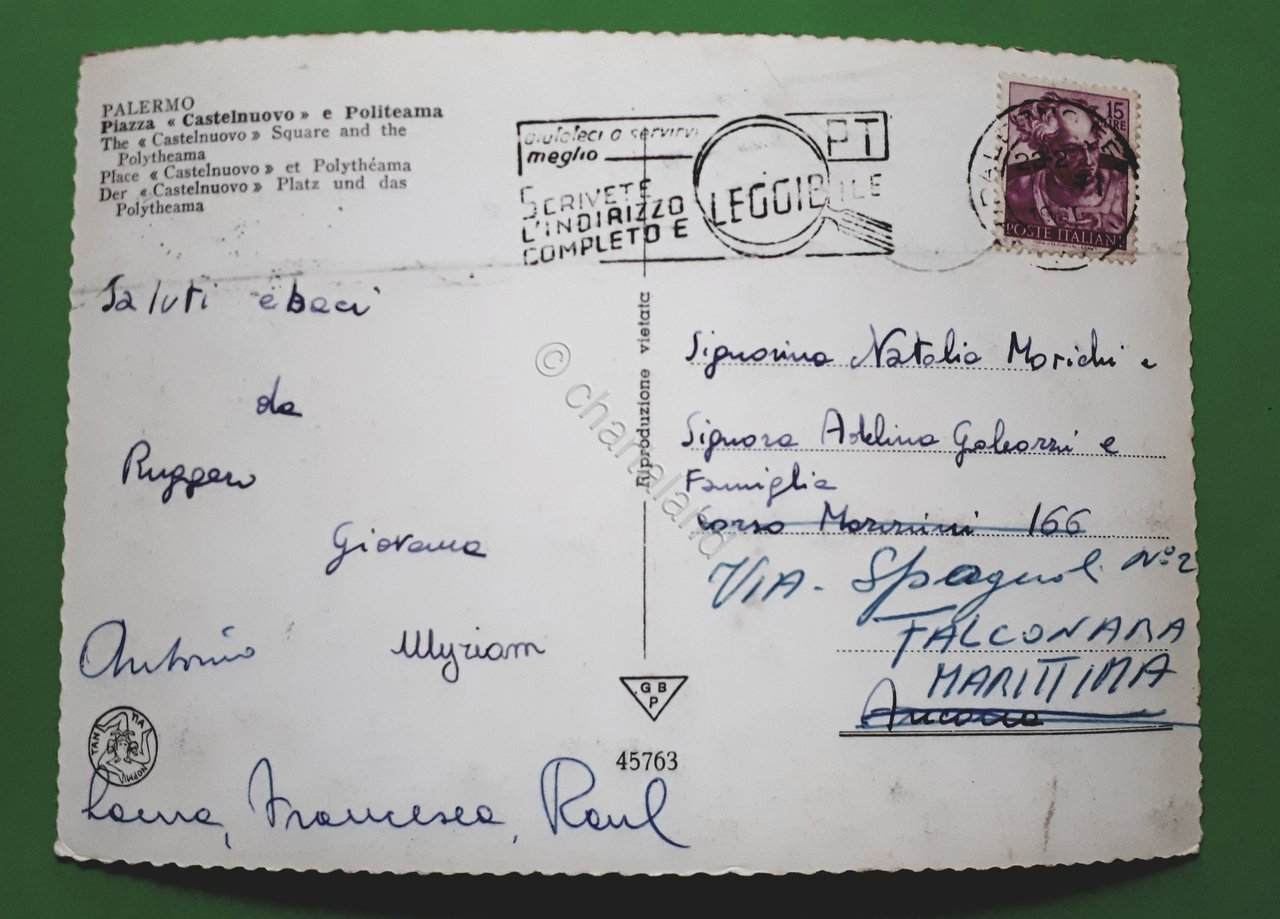 PALERMO
Piazza « Castelnuovo » e Politeama
The « Castelnuovo » Square and the
Polytheama
Place « Castelnuovo » et Polythéama
Der « Castelnuovo » Platz und das
Polytheama
aiutateci a servirvi
meglio
PT
SCRIVETE
L'INDIRIZZO
COMPLETO E LEGGIBILE
15
LIRE
POSTE ITALIANE
Saluti e baci
da
Ruggero
Giovanna
Antonio Myriam
Laura, Francesca, Raul
Riproduzione vietata
© chartaland
Signorina Natalia Morichi e
Signora Adelina Galeazzi e
Famiglia
Corso Mazzini 166
VIA - Spagnoli N° 2
FALCONARA
MARITTIMA
Ancona
GB
P
45763